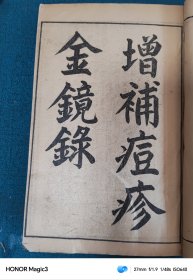 增補痘疹
金鏡錄
HONOR Magic3
27mm f/1.9 1/48s ISO648